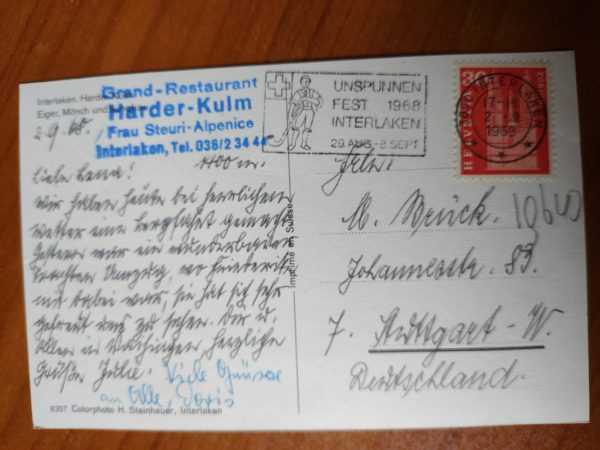 Interlaken, Harder-Kulm
Eiger, Mönch und
Grand-Restaurant
Harder-Kulm
Frau Steuri-Alpenice
Interlaken, Tel. 036/2 34 44
2.9.68.
1400 m.
Liebe Lena!
Wir haben heute bei herrlichem
Wetter eine Bergfahrt gemacht.
Gestern war ein wunderbarer
Trachten Umzug, wo Friederike
mit dabei war, sie hat sich sehr
gefreut uns zu sehen. Dir u.
Allen in herzliche
Grüße Julie. Viele Grüsse
an Alle, Doris
8367 Colorphoto H. Steinhauer, Interlaken
Imprimé en Suisse
UNSPUNNEN
FEST 1968
INTERLAKEN
29. AUG.-8. SEPT
HELVETIA
INTERLAKEN
1968
Frau
M. Brück.
10600
Johannesstr. 83.
7. Stuttgart-W.
Deutschland.